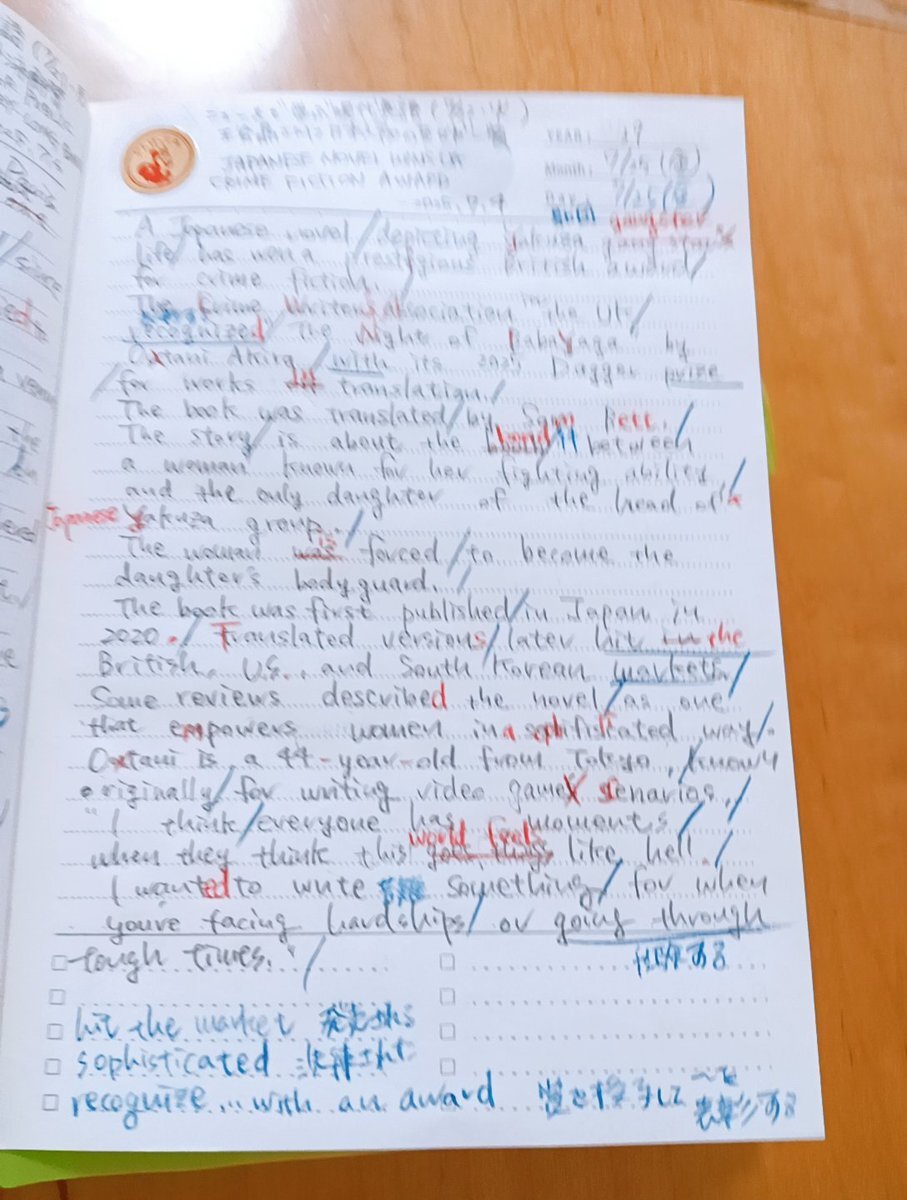 JAPANESE NOVEL WINS UK
CRIME FICTION AWARD
YEAR:
Month: 7/25
7/25
gangster
A Japanese novel/depicting yakuza
life/has won a prestigious British award/
for crime fiction./
The Crime Writers Association in the UK/
recognized The Night of Baba Yaga by
Otani Akira/with its 2025 Dagger prize
/for works in translation./
The book was translated/by Sam Bett./
The story/is about the bond/between
a woman/known for her fighting ability,/
and the only daughter of the head of a
Japanese yakuza group./
is
The woman was forced/to become the
daughter's bodyguard.//
The book was first published/in Japan in
2020./Translated versions/later hit the
British, U.S., and South Korean markets/
Some reviews described the novel/as one
that empowers women in a sophisticated way/.
Otani is a 44-year-old from Tokyo,/known
originally/for writing video game scenarios./
"I think/everyone has moments/
world feels
when they think this like hell./
I wanted to write something/for when
you're facing hardships/or going through
tough times."/
hit the market 発売される
sophisticated 洗練された
recognize...with an award